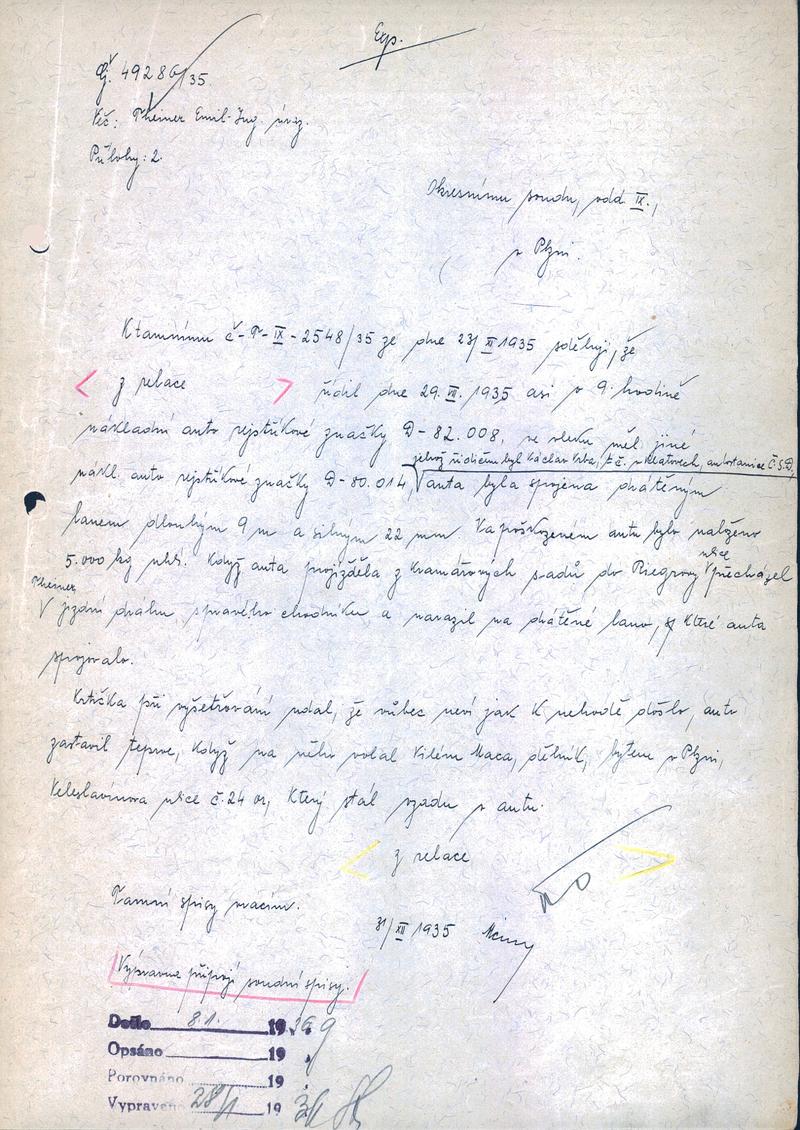 Exp.
Čj. 49286/35
Věc: Theiner Emil Ing. úraz.
Přílohy: 2.
Okresnímu soudu, odd. IX.,
v Plzni.
K tamnímu č-T-IX-2548/35 ze dne 23/XI 1935 sděluji, že
z relace řídil dne 29.VII.1935 asi v 9. hodině
nákladní auto rejstříkové značky D-82.008, ve vleku měl jiné
jehož řidičem byl Václav Vrba, t.č. v Klatovech, autostanice Č.S.D,
nákl. auto rejstříkové značky D-80.014, auta byla spojena drátěným
lanem dlouhým 9 m a silným 22 mm. Na poškozeném autu bylo naloženo
5.000 kg uhlí. Když auta projížděla z Kramářových sadů do Riegrovy ulice přecházel
Theiner
jízdní dráhu s pravého chodníku a narazil na drátěné lano, které auta
spojovalo.
Krtička při vyšetřování udal, že vůbec neví jak k nehodě došlo, auto
zastavil teprve, když na něho volal Vilém Maca, dělník, bytem v Plzni,
Veleslavínova ulice č. 24 or, který stál vzadu v autu.
z relace
Tamní spisy vracím.
31/XII 1935
Výpravna připojí soudní spisy.
Došlo 8.1. 1936
Opsáno 19
Porovnáno 19
Vypraveno 28/1 19 36